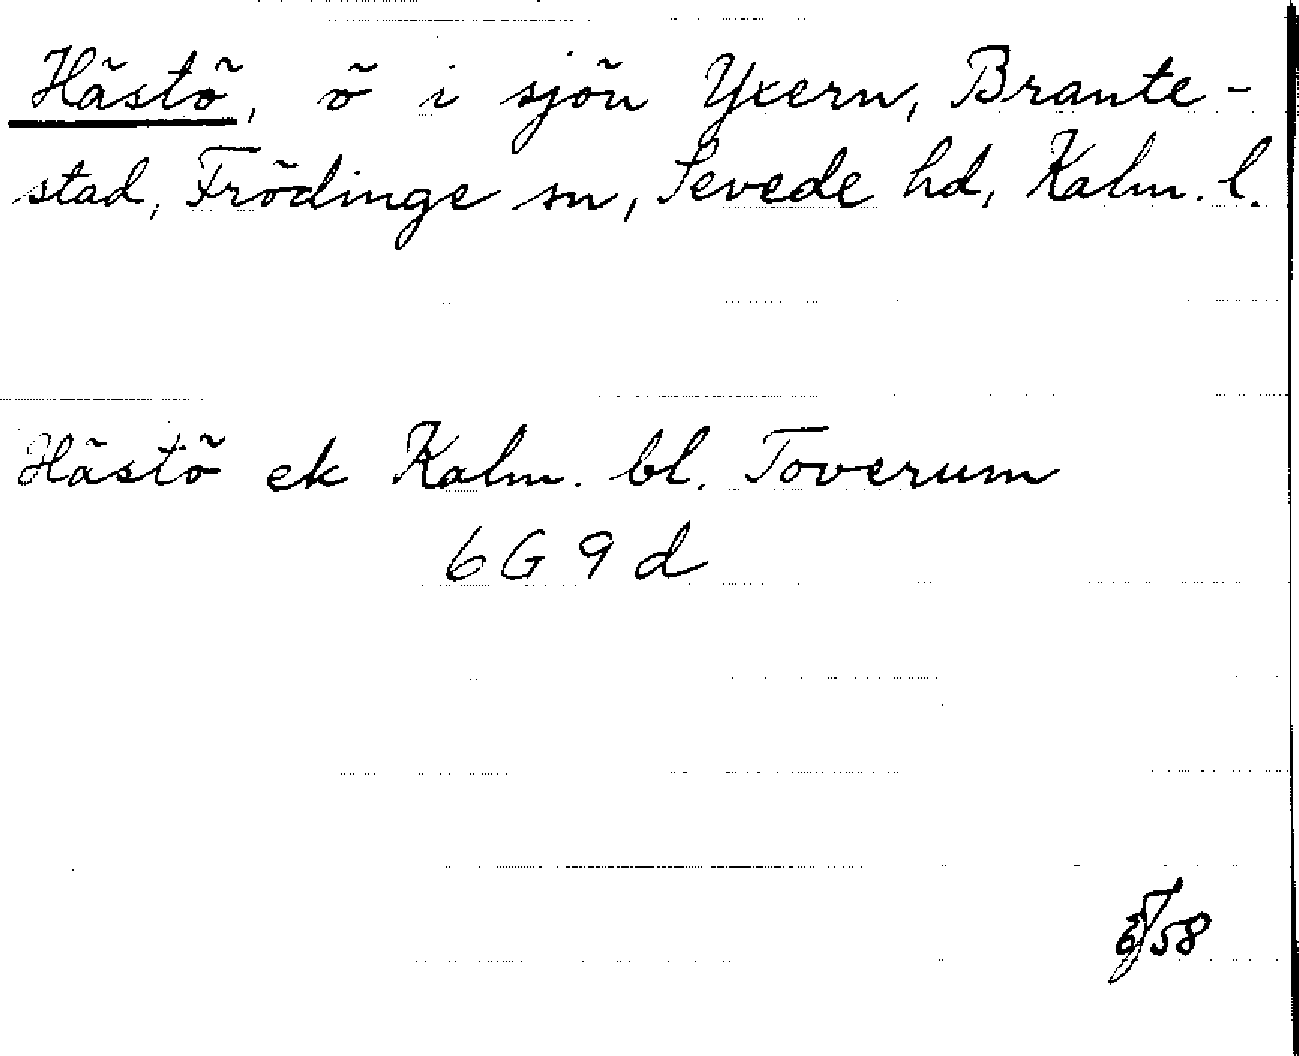 Hästö, ö i sjön Yxern, Brante-
stad, Frödinge sn, Sevede hd, Kalm. l.
Hästö ek Kalm. bl. Toverum
6 G 9 d